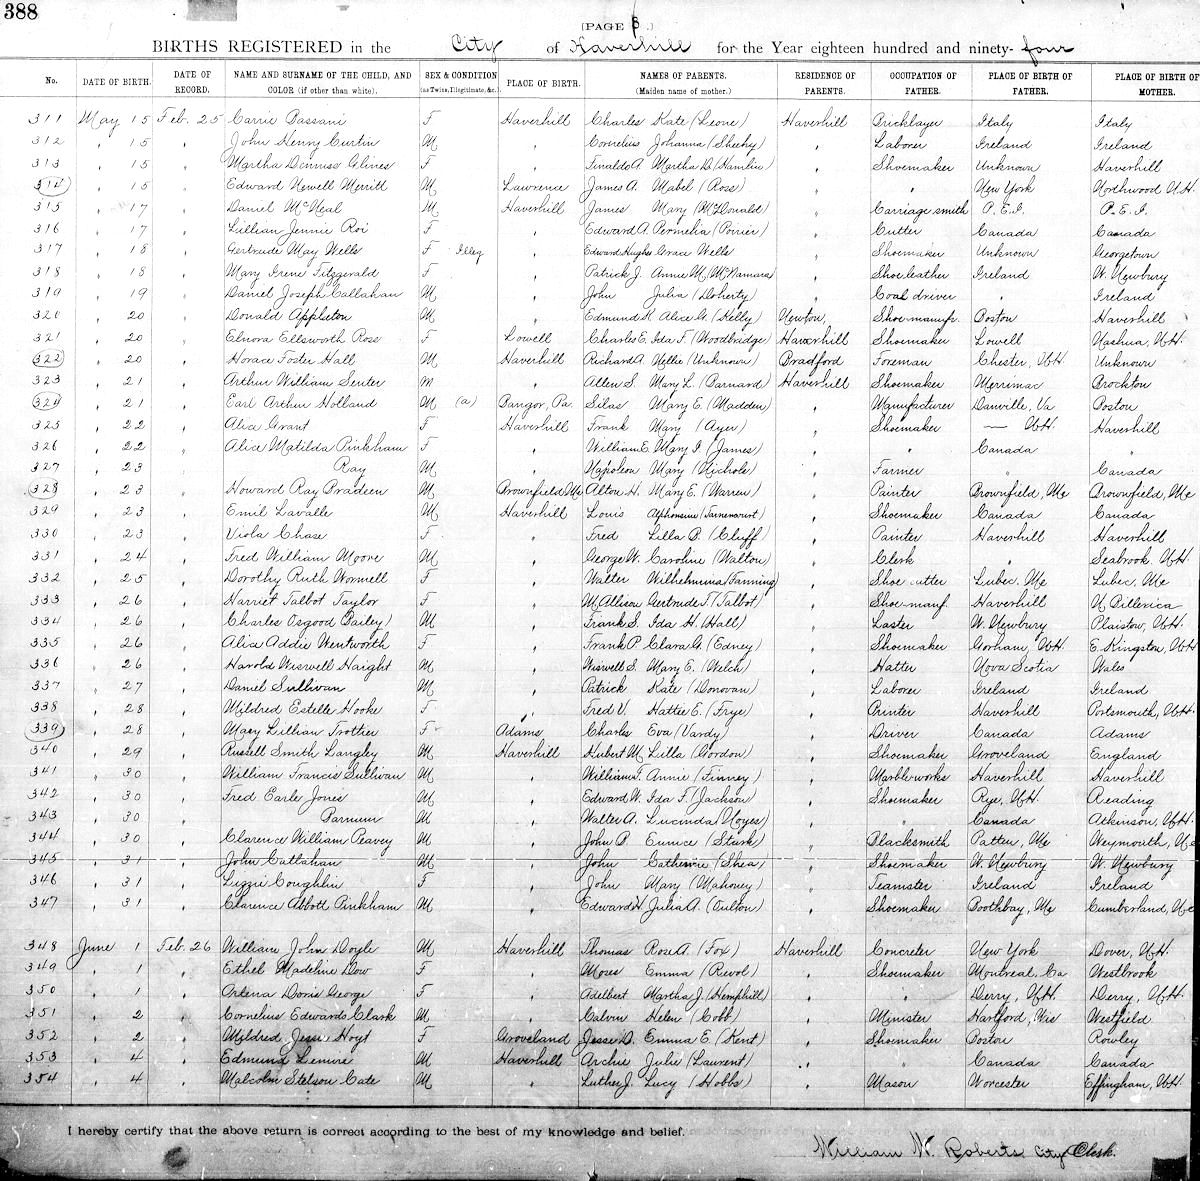 388
(PAGE 8.)
BIRTHS REGISTERED in the City of Haverhill for the Year eighteen hundred and ninety-four
No. DATE OF BIRTH. DATE OF RECORD. NAME AND SURNAME OF THE CHILD, AND COLOR (if other than white). SEX & CONDITION (as Twins, Illegitimate, &c.) PLACE OF BIRTH. NAMES OF PARENTS. (Maiden name of mother.) RESIDENCE OF PARENTS. OCCUPATION OF FATHER. PLACE OF BIRTH OF FATHER. PLACE OF BIRTH OF MOTHER.
311 May 15 Feb. 25 Carrie Bassani F Haverhill Charles Kate (Leone) Haverhill Bricklayer Italy Italy
312 " 15 " John Henry Curtin M " Cornelius Johanna (Sheehy) " Laborer Ireland Ireland
313 " 15 " Martha Glines F " A. Martha D. (Hamlin) " Shoemaker Unknown Haverhill
314 " 15 " Edward Newell Merrill M Lawrence James A. Mabel (Ross) " " New York Northwood N.H.
315 " 17 " Daniel McNeal M Haverhill James Mary (McDonald) " Carriage smith P.E.I. P.E.I.
316 " 17 " Lillian Jennie Roi F " Edward A. Permelia (Poirier) " Cutter Canada Canada
317 " 18 " Gertrude May Wells F Illeg " Edward Hughs Grace Wells " Shoemaker Unknown Georgetown
318 " 18 " Mary Irene Fitzgerald F " Patrick J. Annie M. (McNamara) " Shoe leather Ireland W. Newbury
319 " 19 " Daniel Joseph Callahan M " John Julia (Doherty) " Coal driver " Ireland
320 " 20 " Donald Appleton M " Edmund R. Alice G. (Kelly) Newton, Shoe manufr. Boston Haverhill
321 " 20 " Elnora Ellsworth Rose F Lowell Charles E. Ida F. (Woodbridge) Haverhill Shoemaker Lowell Nashua, N.H.
322 " 20 " Horace Foster Hall M Haverhill Richard A. Nellie (Unknown) Bradford Foreman Chester, N.H. Unknown
323 " 21 " Arthur William Senter M " Allen S. Mary L. (Barnard) Haverhill Shoemaker Merrimac Brockton
324 " 21 " Earl Arthur Holland M (a) Bangor, Pa. Silas Mary E. (Madden) " Manufacturer Danville, Va Boston
325 " 22 " Alice Grant F Haverhill Frank Mary (Ayer) " Shoemaker — N.H. Haverhill
326 " 22 " Alice Matilda Pinkham F " William E. Mary I. (James) " " Canada "
327 " 23 " Ray M " Napoleon Mary (Nichols) " Farmer " Canada
328 " 23 " Howard Ray Bradeen M Brownfield, Me Alton H. Mary E. (Warren) " Painter Brownfield, Me Brownfield, Me
329 " 23 " Emil Lavalle M Haverhill Louis Alphonsine " Shoemaker Canada Canada
330 " 23 " Viola Chase F " Fred Lilla B. (Cluff) " Painter Haverhill Haverhill
331 " 24 " Fred William Moore M " George W. Caroline (Walton) " Clerk " Seabrook, N.H.
332 " 25 " Dorothy Ruth Wormell F " Walter Wilhelmina (Fanning) " Shoe cutter Lubec, Me Lubec, Me
333 " 26 " Harriet Talbot Taylor F " M. Allison Gertrude T. (Talbot) " Shoe manf. Haverhill N. Billerica
334 " 26 " Charles Osgood Bailey M " Frank S. Ida H. (Hall) " Laster W. Newbury Plaistow, N.H.
335 " 26 " Alice Addie Wentworth F " Frank P. Clara A. (Edney) " Shoemaker Gorham, N.H. E. Kingston, N.H.
336 " 26 " Harold Wiswell Haight M " Wiswell S. Mary E. (Welch) " Hatter Nova Scotia Wales
337 " 27 " Daniel Sullivan M " Patrick Kate (Donovan) " Laborer Ireland Ireland
338 " 28 " Mildred Estelle Hooke F " Fred V. Hattie E. (Frye) " Printer Haverhill Portsmouth, N.H.
339 " 28 " Mary Lillian Trottier F Adams Charles Eva (Vardy) " Driver Canada Adams
340 " 29 " Russell Smith Langley M Haverhill Hubert M. Lilla (Gordon) " Shoemaker Groveland England
341 " 30 " William Francis Sullivan M " William F. Annie (Finney) " Marbleworks Haverhill Haverhill
342 " 30 " Fred Earle Jones M " Edward W. Ida F. (Jackson) " Shoemaker Rye, N.H. Reading
343 " 30 " Barnum M " Walter A. Lucinda (Noyes) " " Canada Atkinson, N.H.
344 " 30 " Clarence William Peavey M " John P. Eunice (Stark) " Blacksmith Patten, Me Weymouth, Me
345 " 31 " John Callahan M " John Catherine (Shea) " Shoemaker W. Newbury W. Newbury
346 " 31 " Lizzie Coughlin F " John Mary (Mahoney) " Teamster Ireland Ireland
347 " 31 " Clarence Abbott Pinkham M " Edward H. Julia A. (Oulton) " Shoemaker Boothbay, Me Cumberland, Me
348 June 1 Feb. 26 William John Doyle M Haverhill Thomas Rose A. (Fox) Haverhill Concreter New York Dover, N.H.
349 " 1 " Ethel Madeline Dow F " Moses Emma (Revol) " Shoemaker Montreal, Ca Westbrook
350 " 1 " Orlena Doris George F " Adelbert Martha J. (Hemphill) " " Derry, N.H. Derry, N.H.
351 " 2 " Cornelius Edwards Clark M. " Calvin Helen (Cobb) " Minister Hartford, Wis Westfield
352 " 2 " Mildred Jessi Hoyt F Groveland Jesse D. Emma E. (Kent) " Shoemaker Boston Rowley
353 " 4 " Edmund Lemire M Haverhill Archie Julie (Laurent) " " Canada Canada
354 " 4 " Malcolm Stetson Cate M " Luther J. Lucy (Hobbs) " Mason Worcester Effingham, N.H.
I hereby certify that the above return is correct according to the best of my knowledge and belief.
William W. Roberts City Clerk.